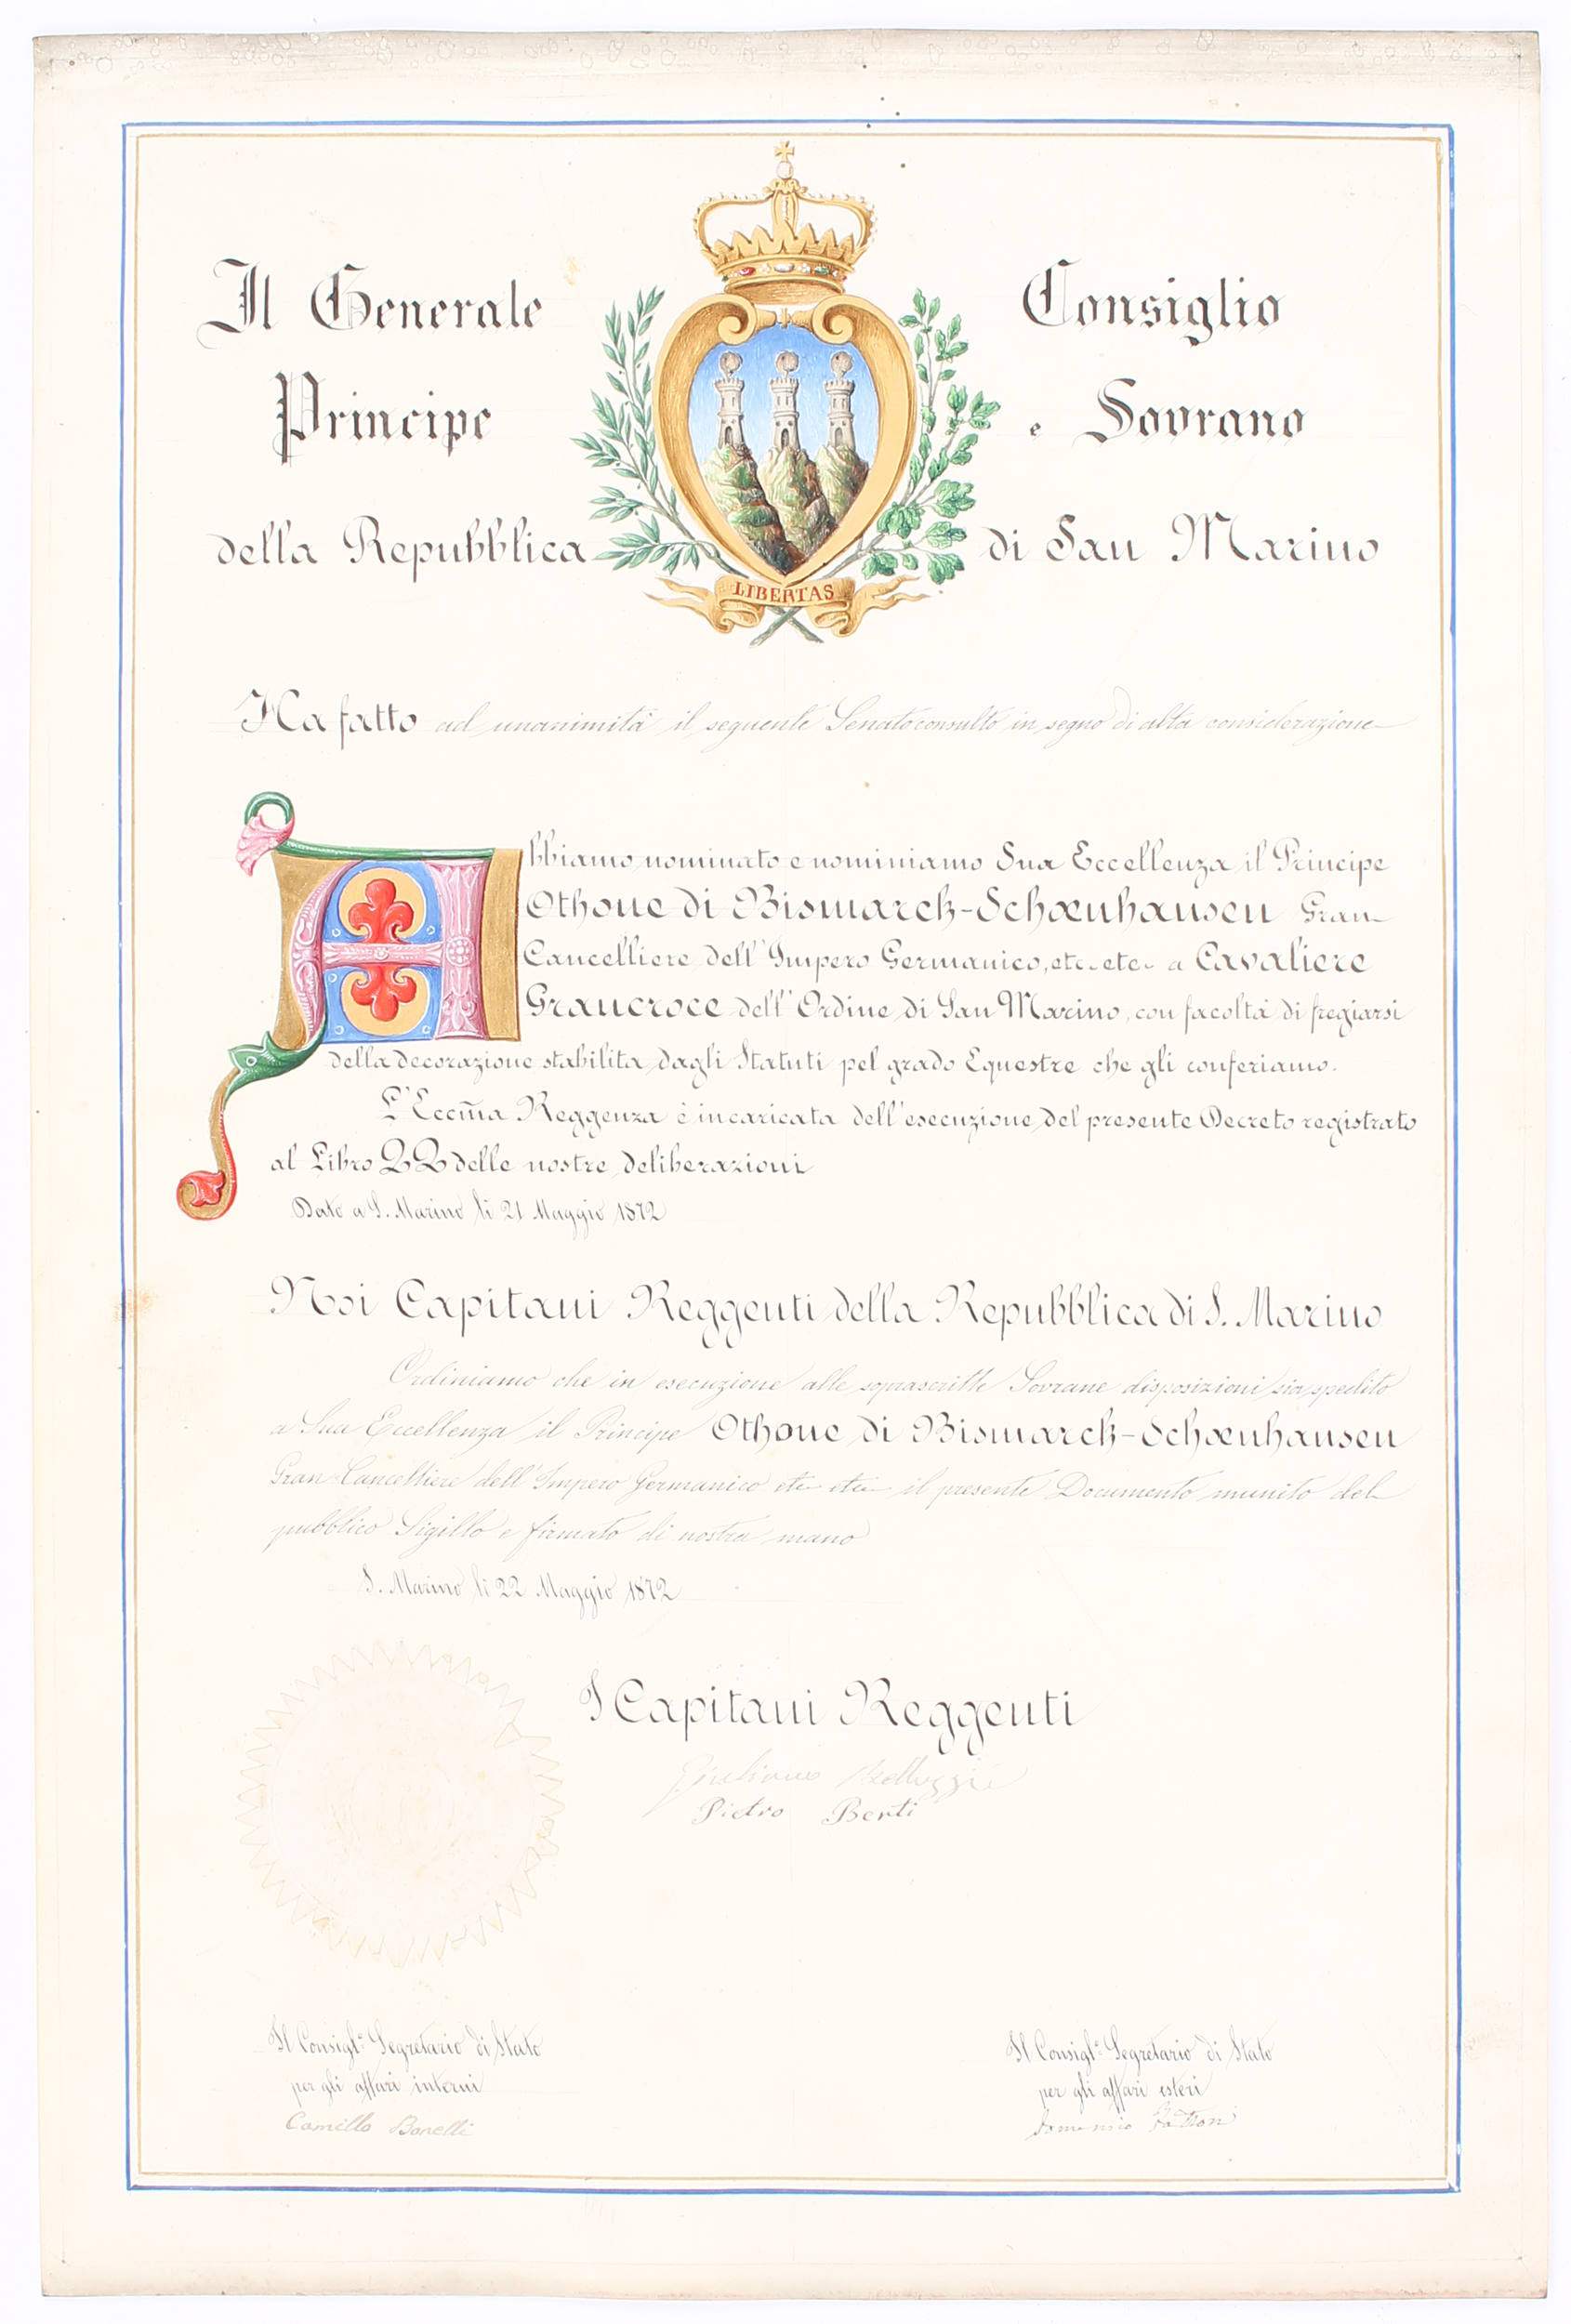 Il Generale Consiglio
Principe e Sovrano
della Repubblica di San Marino
LIBERTAS
Ha fatto ad unanimità il seguente Senatoconsulto in segno di alta considerazione
Abbiamo nominato e nominiamo Sua Eccellenza il Principe
Othone di Bismarck-Schœnhausen Gran
Cancelliere dell'Impero Germanico, etc. etc. a Cavaliere
Grancroce dell'Ordine di San Marino, con facoltà di fregiarsi
della decorazione stabilita dagli Statuti pel grado Equestre che gli conferiamo.
L'Eccm̃a Reggenza è incaricata dell'esecuzione del presente Decreto registrato
al Libro QQ delle nostre deliberazioni
Dato a S. Marino li 21 Maggio 1872
Noi Capitani Reggenti della Repubblica di S. Marino
Ordiniamo che in esecuzione alle soprascritte Sovrane disposizioni sia spedito
a Sua Eccellenza il Principe Othone di Bismarck-Schœnhausen
Gran Cancelliere dell'Impero Germanico etc etc il presente Documento munito del
pubblico Sigillo e firmato di nostra mano
S. Marino li 22 Maggio 1872
I Capitani Reggenti
Giuliano Belluzzi
Pietro Berti
Il Consigl.e Segretario di Stato
per gli affari interni
Camillo Bonelli
Il Consigl.e Segretario di Stato
per gli affari esteri
Domenico Fattori